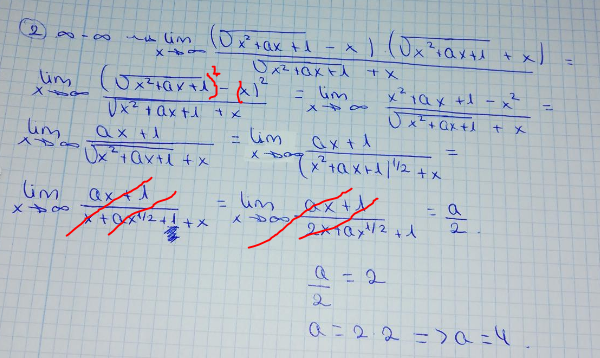 ② ∞-∞ ⇝ lim x→∞ (√(x²+ax+1) - x) (√(x²+ax+1) + x) / (√(x²+ax+1) + x) =
lim x→∞ ((√(x²+ax+1))² - (x)²) / (√(x²+ax+1) + x) = lim x→∞ (x²+ax+1-x²) / (√(x²+ax+1) + x) =
lim x→∞ (ax+1) / (√(x²+ax+1) + x) = lim x→∞ (ax+1) / ((x²+ax+1)^1/2 + x) =
lim x→∞ (ax+1) / (x+ax^1/2+1+x) = lim x→∞ (ax+1) / (2x+ax^1/2+1) = a/2.
a/2 = 2
a = 2·2 => a = 4.